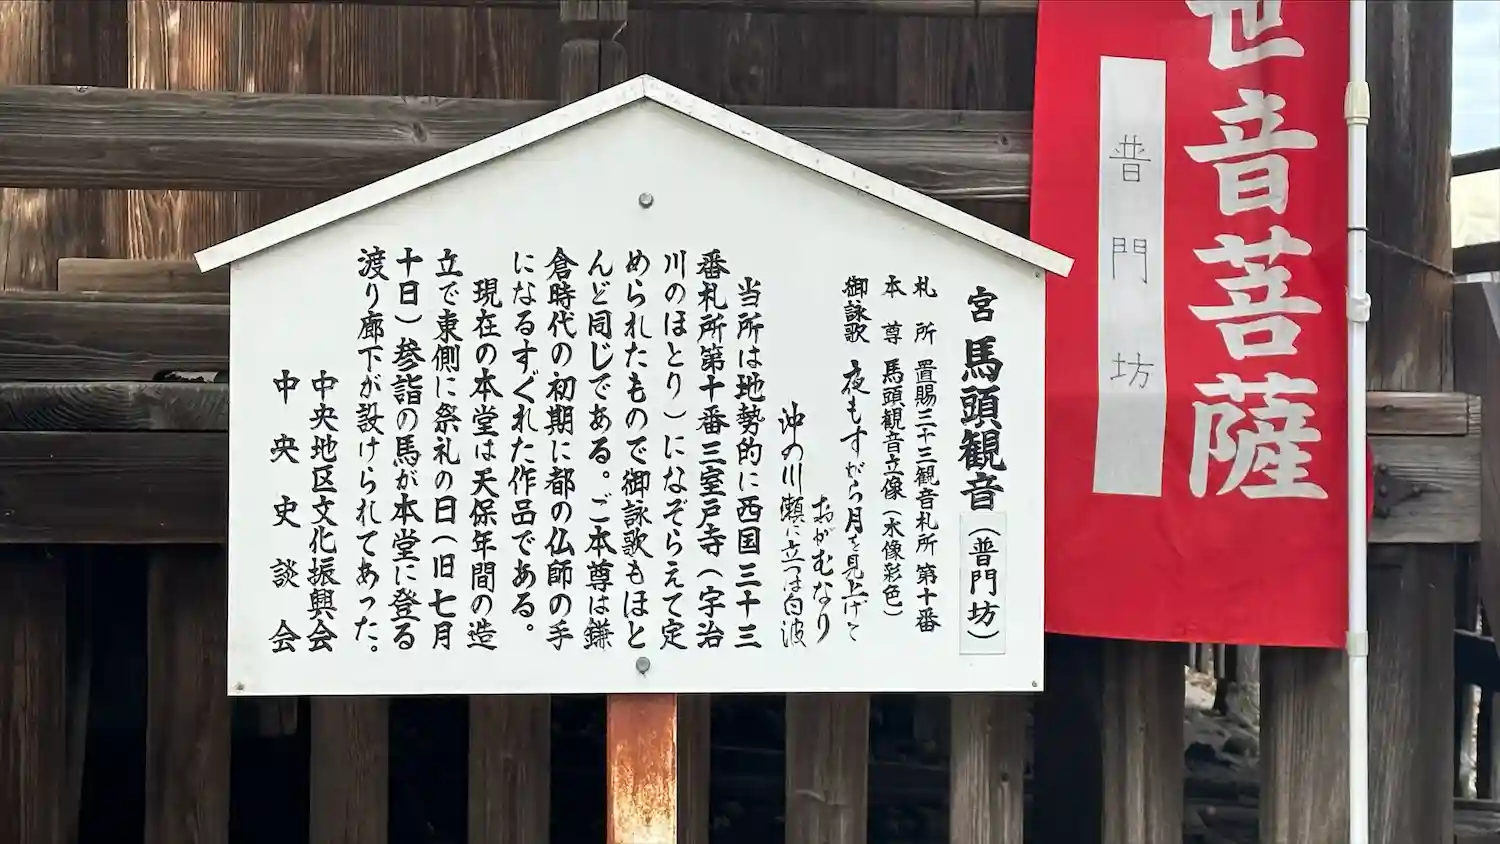 世音菩薩
普門坊
宮 馬頭観音(普門坊)
札所 置賜三十三観音札所 第十番
本尊 馬頭観音立像(木像彩色)
御詠歌 夜もすがら月を見上げて
おがむなり
沖の川瀬に立つは白波
当所は地勢的に西国三十三
番札所第十番三室戸寺(宇治
川のほとり)になぞらえて定
められたもので御詠歌もほと
んど同じである。ご本尊は鎌
倉時代の初期に都の仏師の手
になるすぐれた作品である。
現在の本堂は天保年間の造
立で東側に祭礼の日(旧七月
十日)参詣の馬が本堂に登る
渡り廊下が設けられてあった。
中央地区文化振興会
中央史談会